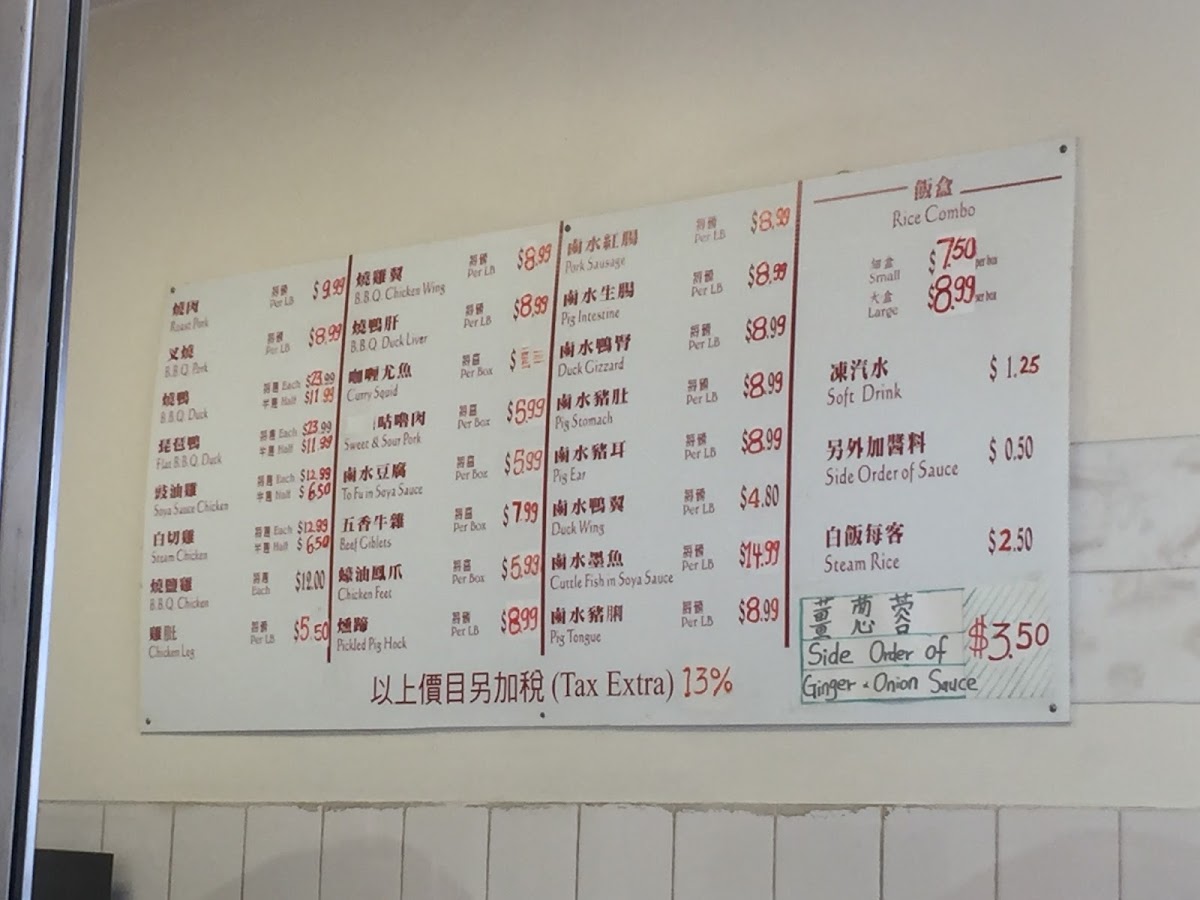 燒肉 每磅 $9.99
Roast Pork Per LB
叉燒 每磅 $8.99
B.B.Q. Pork Per LB
燒鴨 每隻 Each $23.99
B.B.Q. Duck 半隻 Half $11.99
琵琶鴨 每隻 Each $23.99
Flat B.B.Q. Duck 半隻 Half $11.99
豉油雞 每隻 Each $12.99
Soya Sauce Chicken 半隻 Half $6.50
白切雞 每隻 Each $12.99
Steam Chicken 半隻 Half $6.50
燒鹽雞 每隻 $12.00
B.B.Q. Chicken Each
雞肶 每磅 $5.50
Chicken Leg Per LB
燒雞翼 每磅 $8.99
B.B.Q. Chicken Wing Per LB
燒鴨肝 每磅 $8.99
B.B.Q. Duck Liver Per LB
咖喱尤魚 每盒 $
Curry Squid Per Box
咕嚕肉 每盒 $5.99
Sweet & Sour Pork Per Box
鹵水豆腐 每盒 $5.99
To Fu in Soya Sauce Per Box
五香牛雜 每盒 $7.99
Beef Giblets Per Box
蠔油鳳爪 每盒 $5.99
Chicken Feet Per Box
燻蹄 每磅 $8.99
Pickled Pig Hock Per LB
鹵水紅腸 每磅 $8.99
Pork Sausage Per LB
鹵水生腸 每磅 $8.99
Pig Intestine Per LB
鹵水鴨腎 每磅 $8.99
Duck Gizzard Per LB
鹵水豬肚 每磅 $8.99
Pig Stomach Per LB
鹵水豬耳 每磅 $8.99
Pig Ear Per LB
鹵水鴨翼 每磅 $4.80
Duck Wing Per LB
鹵水墨魚 每磅 $14.99
Cuttle Fish in Soya Sauce Per LB
鹵水豬脷 每磅 $8.99
Pig Tongue Per LB
飯盒
Rice Combo
細盒 $7.50 per box
Small
大盒 $8.99 per box
Large
凍汽水 $1.25
Soft Drink
另外加醬料 $0.50
Side Order of Sauce
白飯每客 $2.50
Steam Rice
薑蔥蓉
Side Order of $3.50
Ginger & Onion Sauce
以上價目另加稅 (Tax Extra) 13%